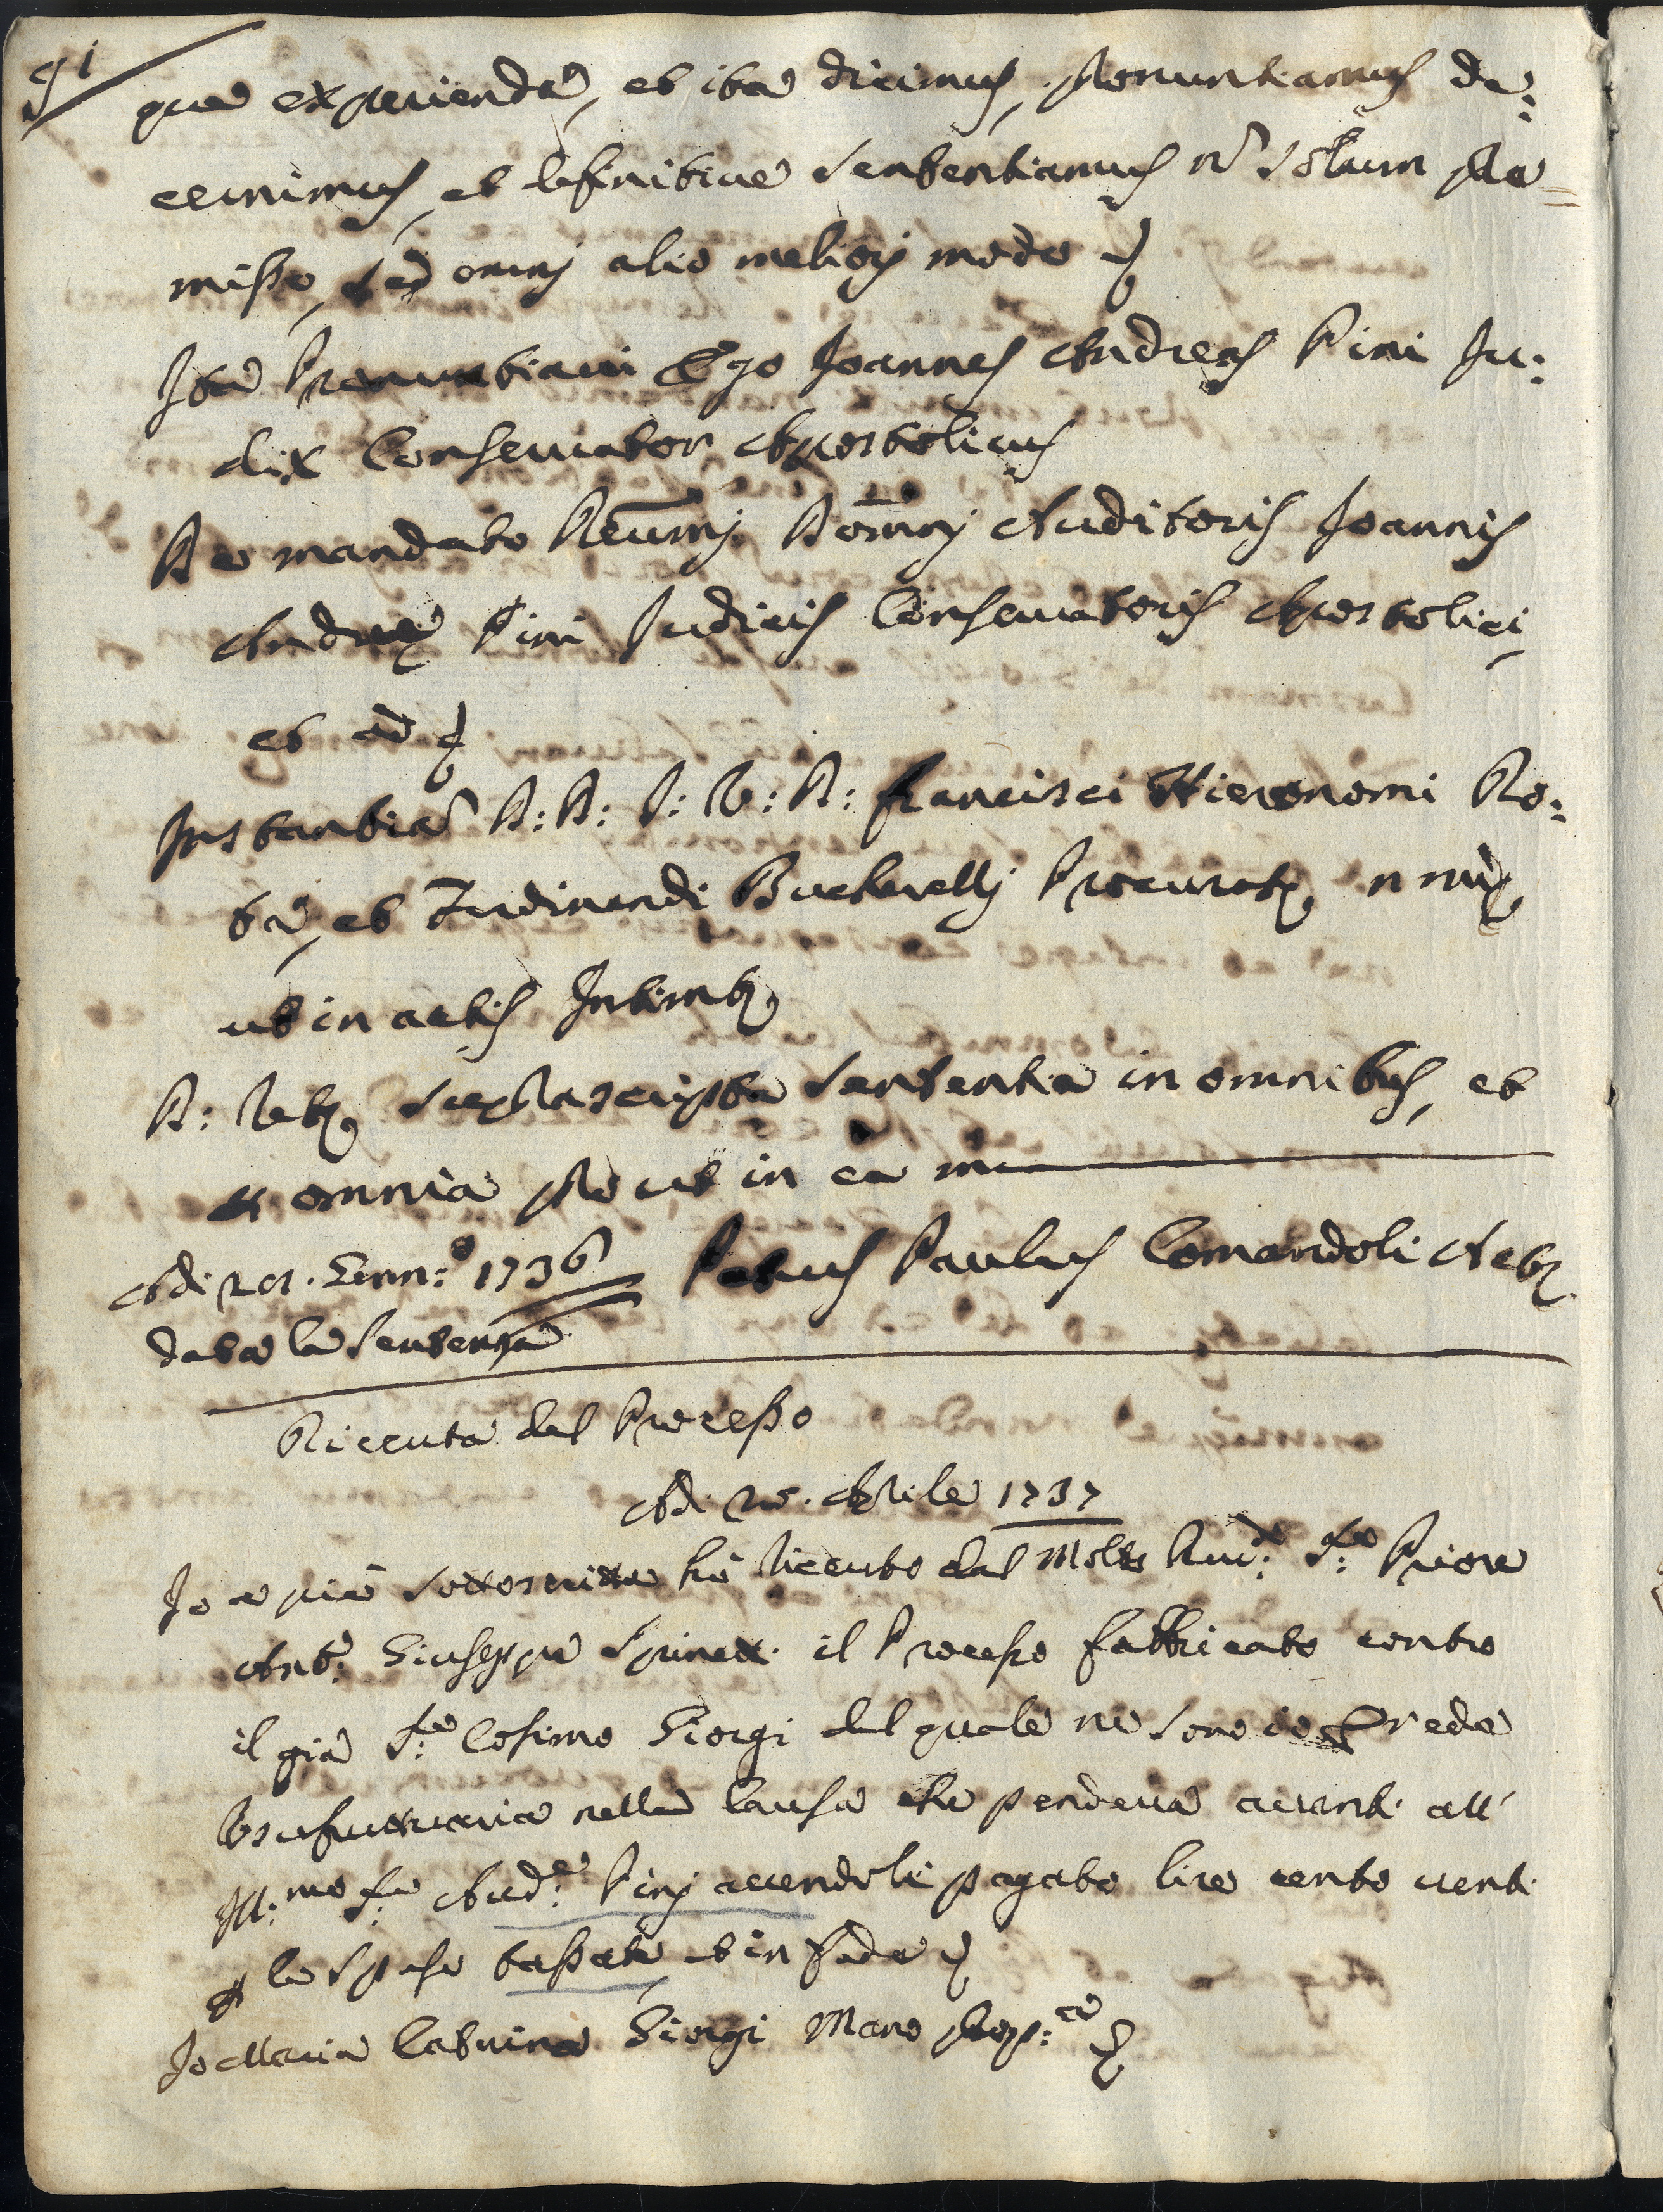 91
que expedienda, et ita dicimus, pronuntiamus de:
cernimus, et definitive sententiamus no solum pre=
misso, sed omnj alio meliorj modo
Ita Pronuntiavi Ego Joannes Andreas Pini Ju:
dix Conservator Apostolicus
De mandato Reumj Domnj Auditoris Joannis
Andreę Pini Judicis Conservatoris Apostolici,
et ad
Instantia D: D: J: V: D: Francisci Hieronomi Ro:
ta, et Ferdinandi Bucherellj Procurat
ut in actis Intimat
D: suprascripta sententia in omnibus, et
omnia pro ut in ea
Adi 21. Genn:o 1736 Petrus Paulus Comandoli Act
data la sentenza
Riceuta del Processo
Adi 25. Aprile 1737
Io a piè sottoscritta hò riceuto dal Molto Rudo: Sre: Priore
Anto: Giuseppe il Processo fabbricato contro
il già Sre: Cosimo Giorgi del quale ne sono io Erede
Usufruttuaria nella Causa che pendeva avanti all'
Ill:mo Sre: Aude: Pinj avendoli pagato lire cento venti
p le spese tassate et in fede
Io Maria Caterina Giorgi Mano prop:a